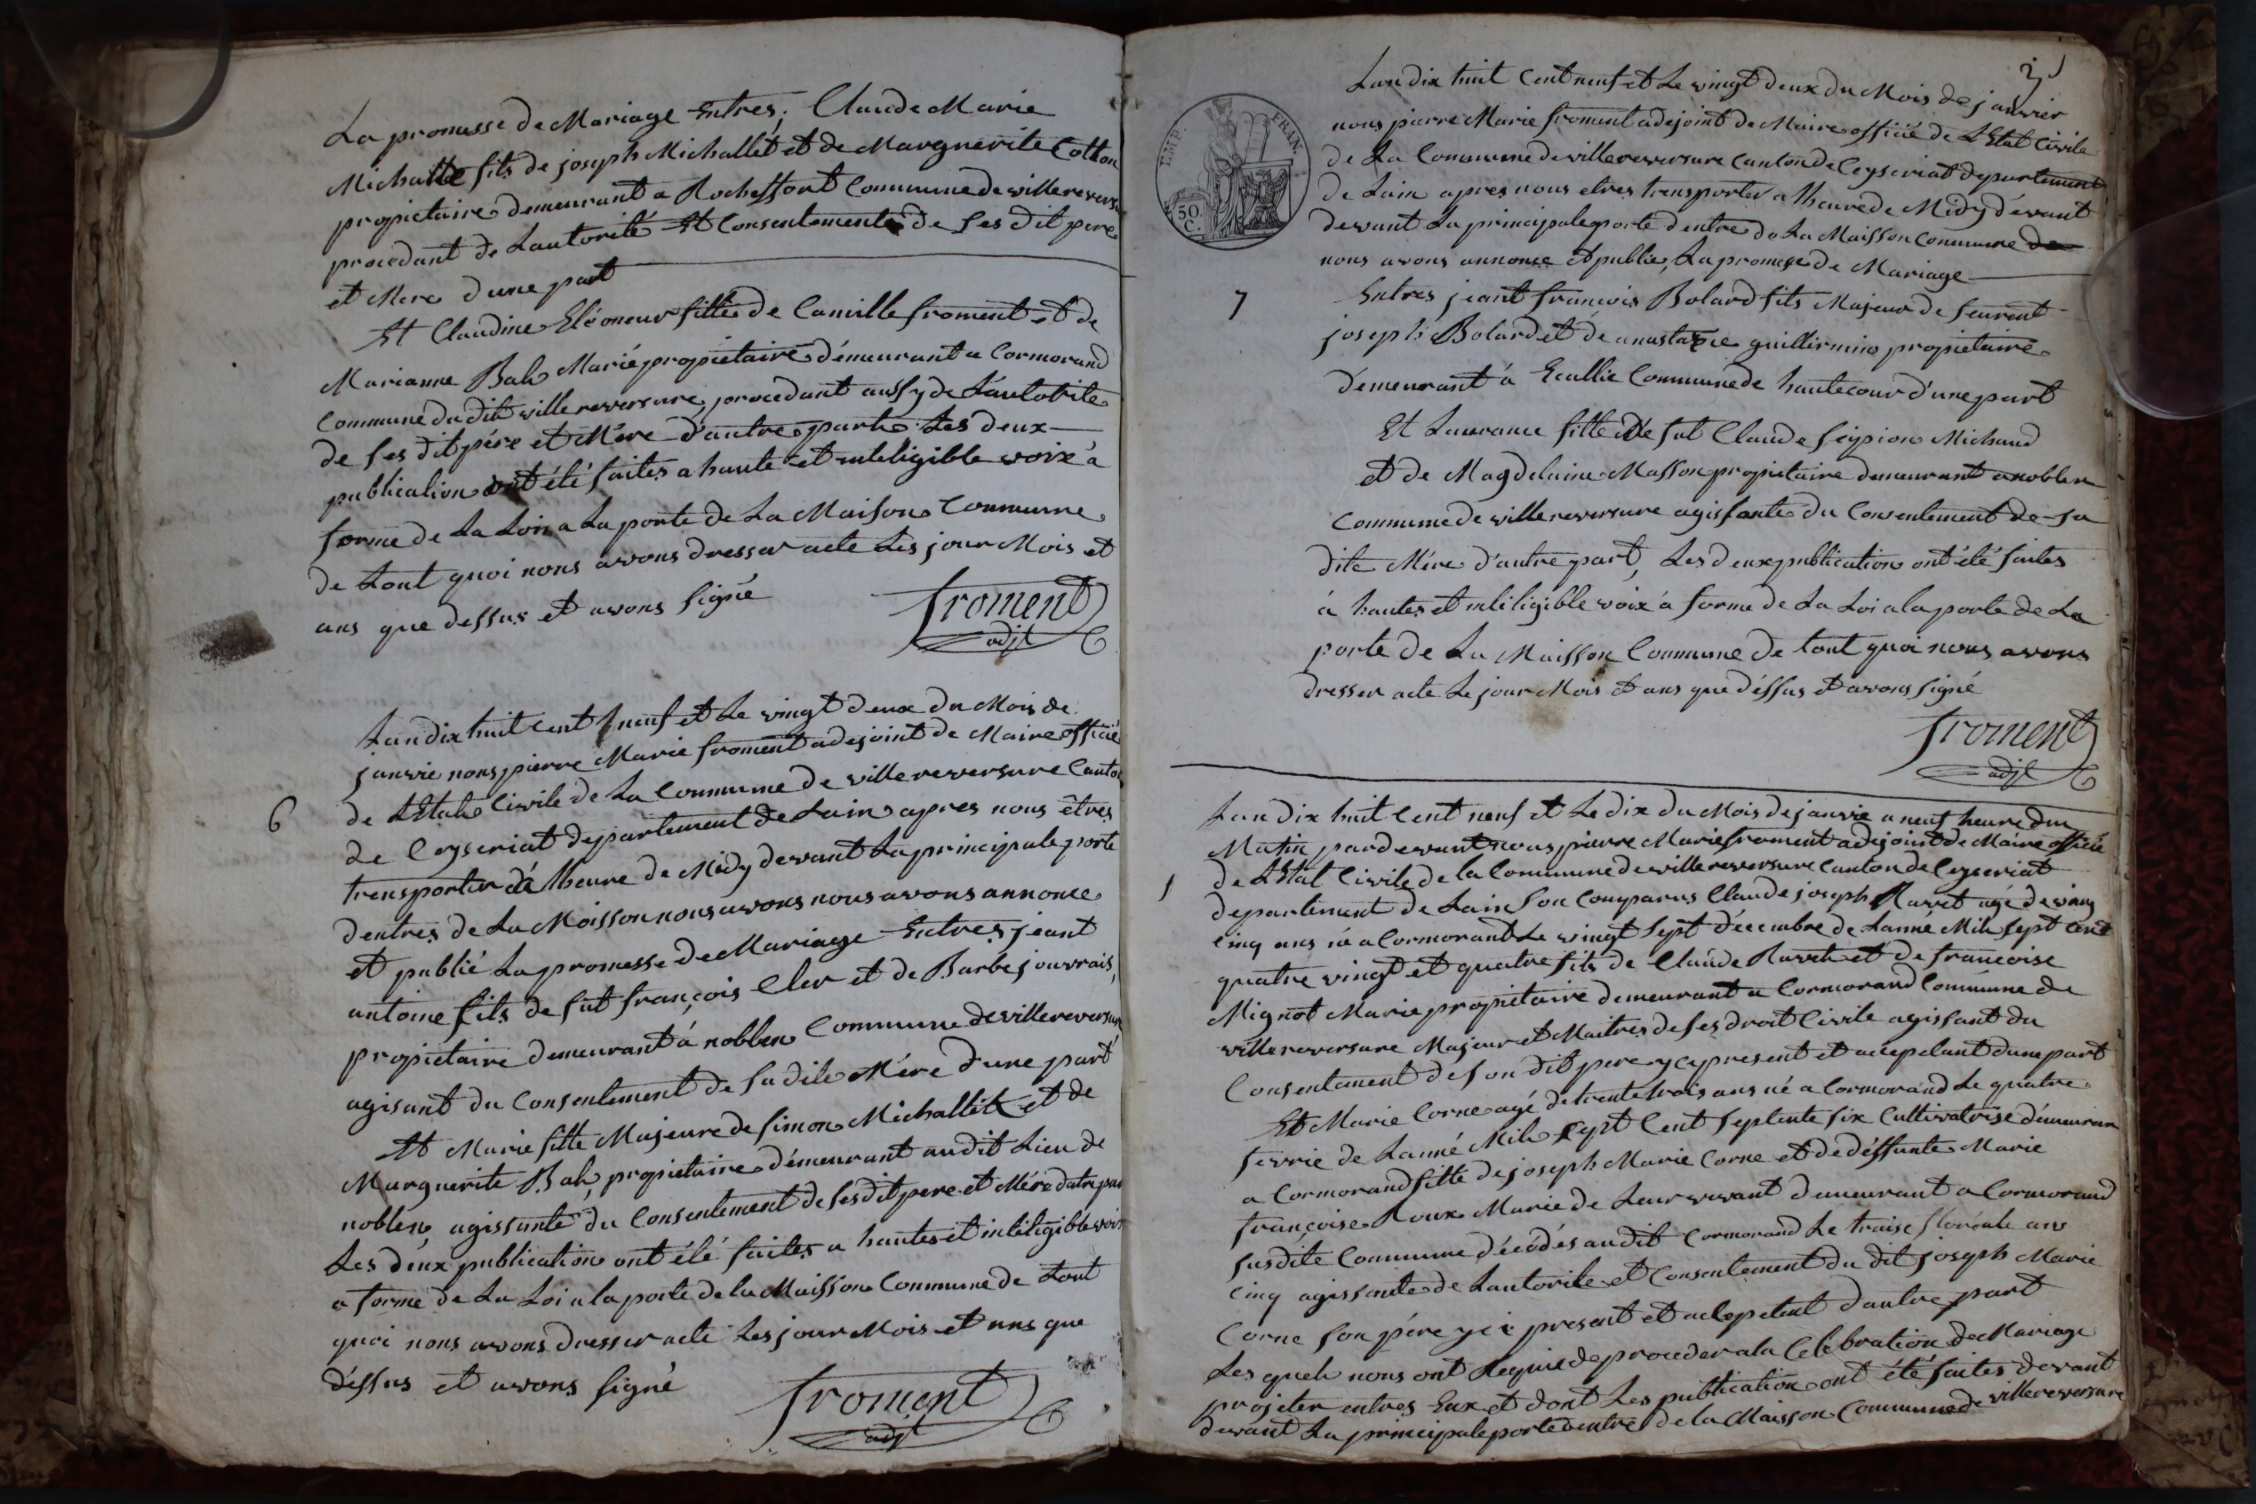 La promesse de Mariage Entres, Claude Marie
Michallet fils de joseph Michallet et de Marguerite Cotton
propietaire demeurant a Rocheffort Commune de villerevers
procedant de Lautorité Et Consentement de ses dit pere
et Mere d'une part
Et Claudine Eléoneur fille de Camille froment et de
Marianne Bah Marié propietaire démeurant a Cormorand
Commune du dit villereversure, procedant aussy de Lautorite
de ses dit pére et Mére d'autre part Les deux
publication ont été faites a haute et inteligible voix a
forme de La Loix a La porte de La Maison Commune
de tout quoi nous avons dresser acte Les jour Mois et
ans que dessus et avons signé
froment
adjt
6
Lan dix huit Cent neuf et Le vingt deux du Mois de
janvie nous pierre Marie froment adejoint de Maire officié
de LEtat Civile de La Commune de villereversure Canton
de Ceyseriat departement de Lain apres nous êtres
transporter a Lheure de Midy devant La principale porte
dentres de La Moisson nous avons nous avons annonce
et publié La promesse de Mariage Entres jeant
antoine fils de fut françois Cler et de Barbe jouvrais,
propietaire demeurant á noblen Commune de villereversure
agisant du Consentement de sa dite Mére d'une part
Et Marie fille Majeure de simon Michallet et de
Marguerite Bah propietaire démeurant audit Lieu de
noblen, agissante du Consentement de ses dit pere et Mére datre par
Les deux publication ont été faites a hautes et inteligible voix
a forme de La Loi a la porte de la Maisson Commune de tout
quoi nous avons dresser acte Les jour Mois et ans que
déssus et avons signé
froment
adjt
EMP. FRAN.
50
C.
Lan dix huit Cent neuf et Le vingt deux du Mois de janvier
nous pierre Marie froment adejoint de Maire officié de LEtat Civile
de La Commune de villereversure Canton de Ceyseriat departement
de Lain apres nous etres transporter a lheure de Midy devant
devant La principale porte dentre de La Maisson Commune de
nous avons annonce et publie, La promesse de Mariage
7
Entres jeant françois Bolard fils Majeur de
joseph Bolard et de anastazie guillirmin propietaire
démeurant á Ecallie Commune de hautecour d'une part
Et Laurance fille De fut Claude scipion Michaud
et de Magdelaine Masson propietaire demeurant a noblen
Commune de villereversure agissante du Consentement de sa
dite Mére d'autre part, Les deux publication ont été faites
á hautes et inteligible voix á forme de La Loi a la porte de La
porte de La Maisson Commune de tout quoi nous avons
dresser acte Le jour Mois et ans que déssus et avons signé
froment
adjt
1
Lan dix huit Cent neuf et Le dix du Mois de janvie a neuf heure du
Matin par devant nous pierre Marie froment adejoint de Maire officié
de LEtat Civile de la Commune de villereversure Canton de Ceyseriat
departement de Lain son Comparus Claude joseph Ravet agé de ving
cinq ans né a Cormorand Le vingt sept décembre de Lanné Mile sept Cent
quatre vingt et quatre fils de Claude Ravet et de francoise
Mignot Marie propietaire demeurant a Cormorand Commune de
villereversure Majeur et Maitres de ses droit Civile agissant du
Consentement de son dit pere yci present et accepetant d'une part
Et Marie Corne agé de trente trois ans né a Cormorand Le quatre
fevrie de Lanné Mile sept Cent septente six Cultivatrise démeuran
a Cormorand fille de joseph Marie Corne et de déffunte Marie
françoise Roux Marie de Leur vivant demeurant a Cormorand
susdite Commune décédés au dit Cormorand Le traise floréale an
cinq agissante de Lautorite et Consentement du dit joseph Marie
Corne son pére yci present et accepetent d'autre part
Les queh nous ont Requis de proceder a la Celebration de Mariage
projeter entres Eux et dont Les publication ont été faites devant
devant La principale porte dentre de la Maisson Commune de villereversure